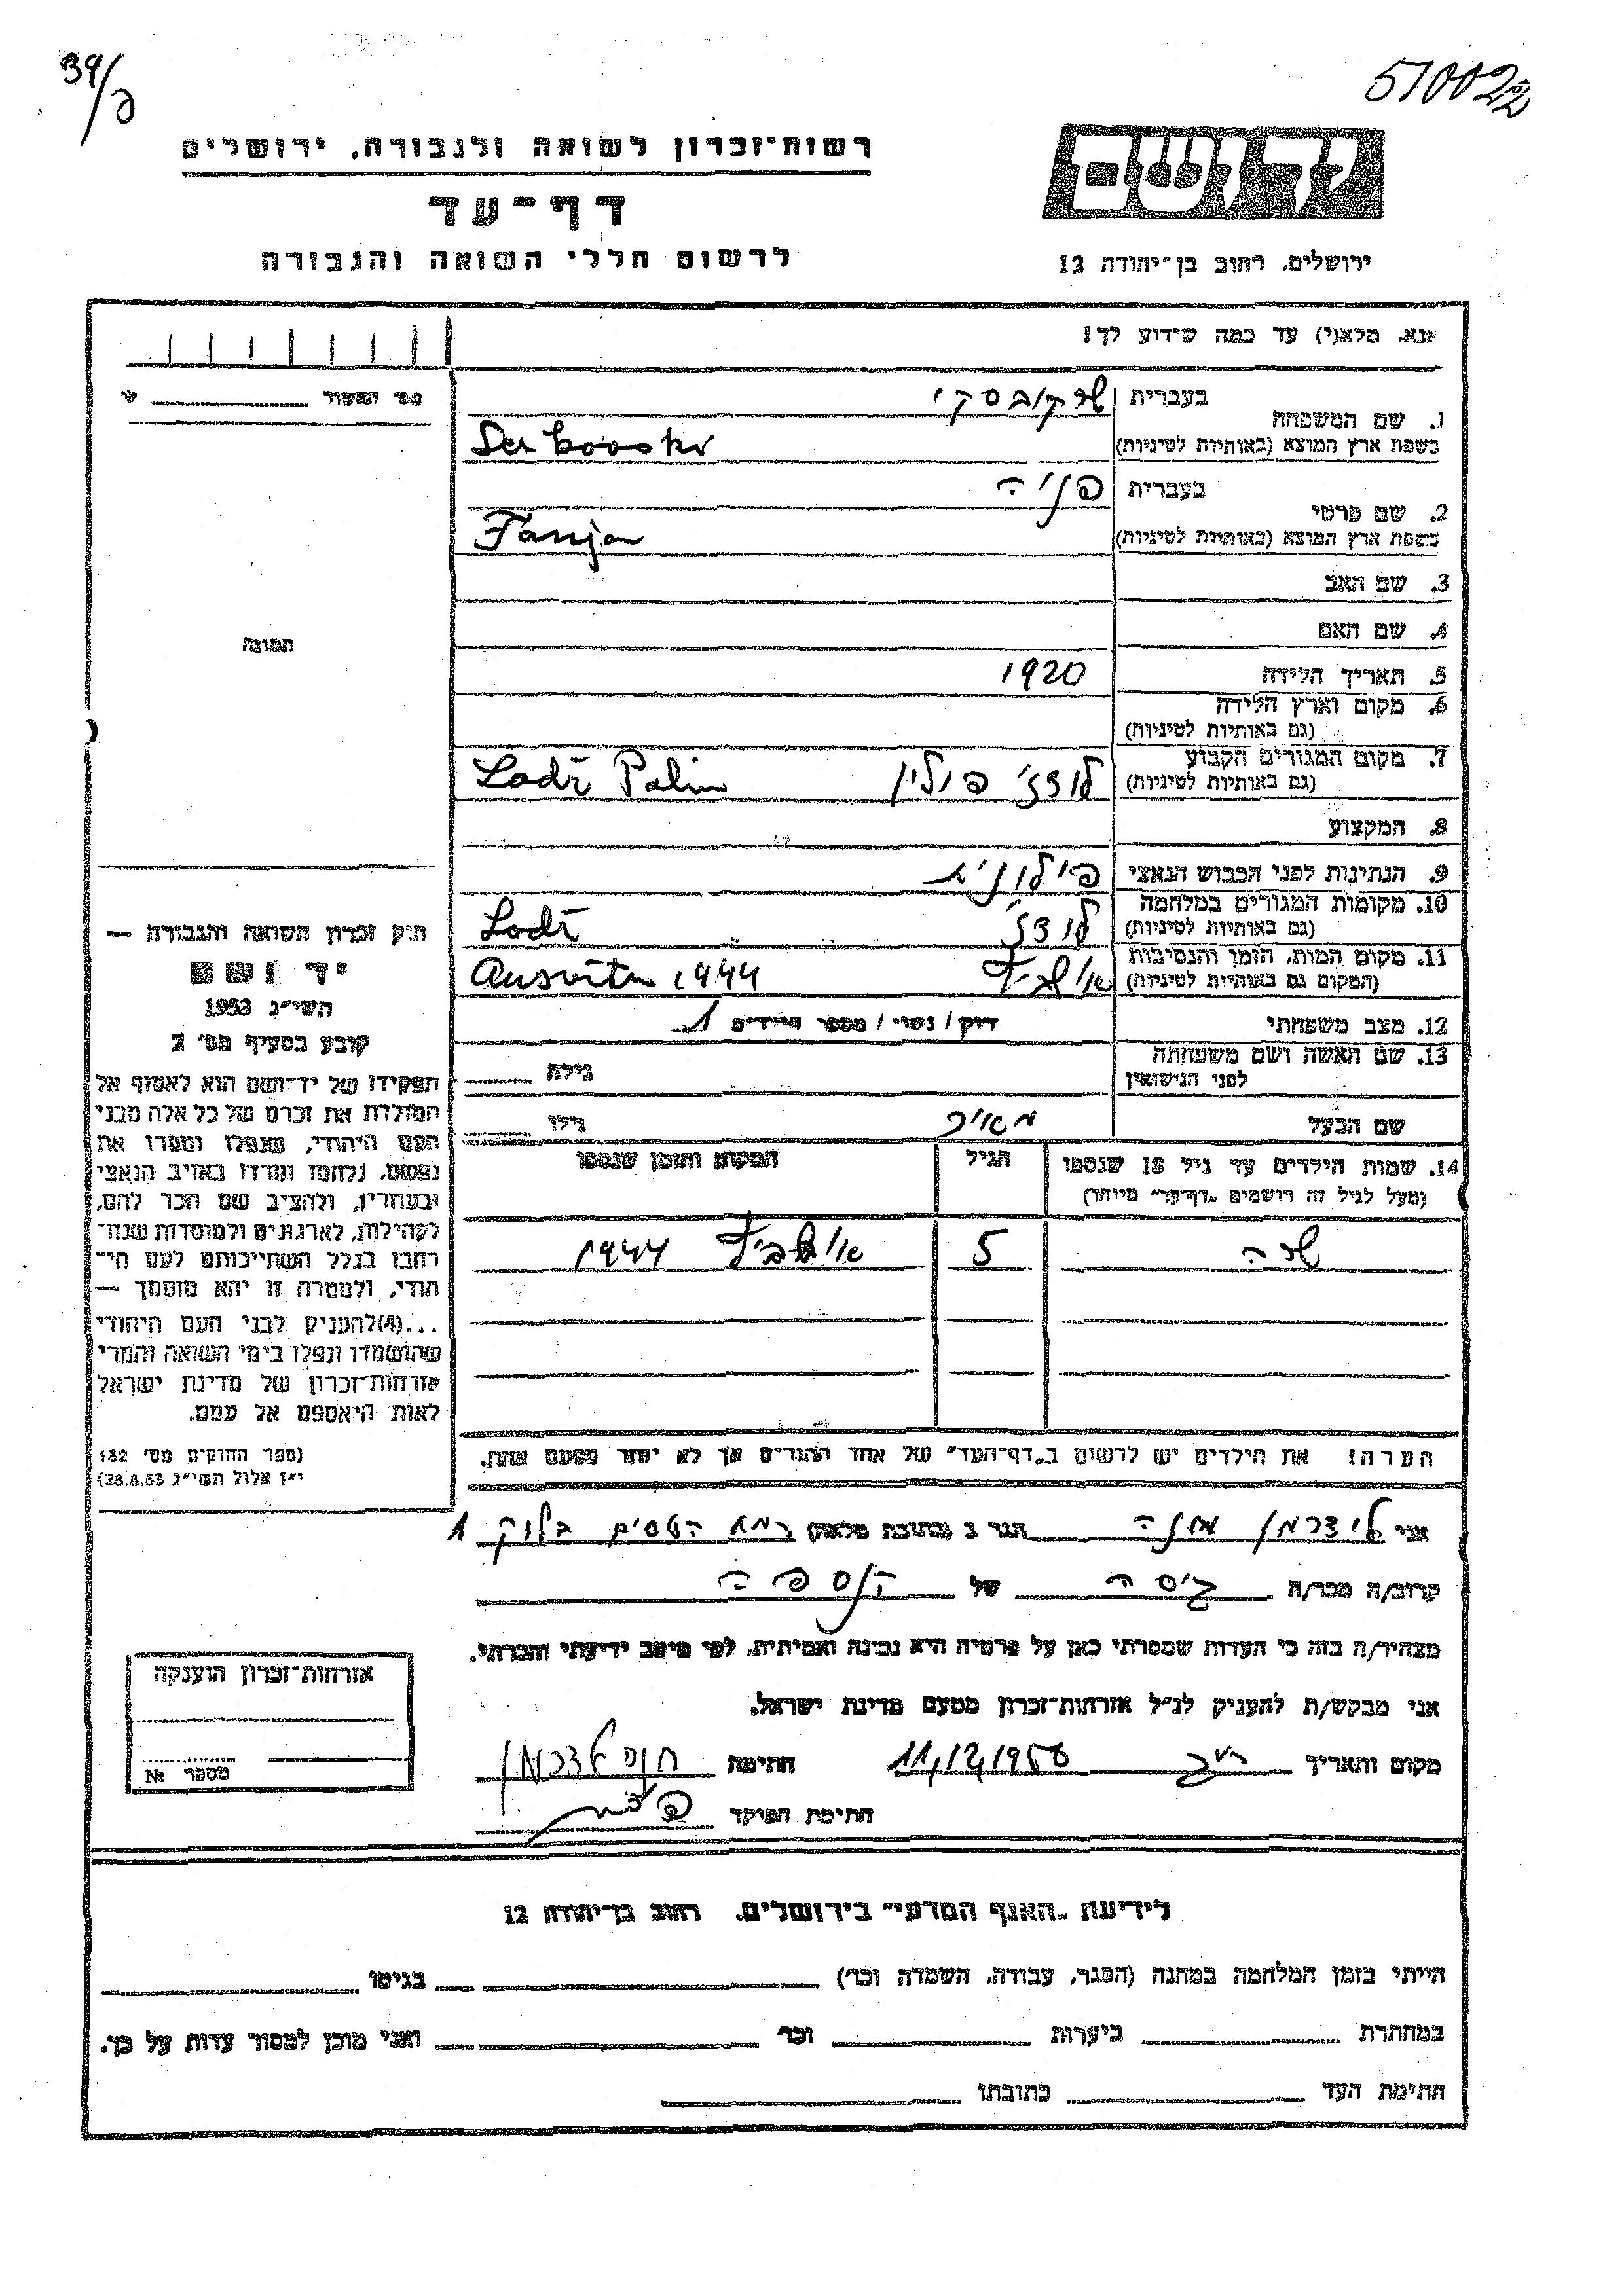 39/פ
570022
רשות־זכרון לשואה ולגבורה, ירושלים
דף־עד
לרשום חללי השואה והגבורה
יד ושם
ירושלים, רחוב בן־יהודה 12
נא, מלא(י) עד כמה שידוע לך!
מס׳ האשור
1. שם המשפחה בעברית שרקובסקי
בשפת ארץ המוצא (באותיות לטיניות)
2. שם פרטי בעברית פניה
בשפת ארץ המוצא (באותיות לטיניות) Fanja
3. שם האב
4. שם האם
5. תאריך הלידה 1920
6. מקום וארץ הלידה
(גם באותיות לטיניות)
7. מקום המגורים הקבוע לודז׳ פולין
(גם באותיות לטיניות) Lodź Polin
8. המקצוע
9. הנתינות לפני הכבוש הנאצי פולונית
10. מקומות המגורים במלחמה לודז׳
(גם באותיות לטיניות) Lodź
11. מקום המות, הזמן והנסיבות
(המקום גם באותיות לטיניות) אושביץ 1944
12. מצב משפחתי רוק / נשוי / מספר הילדים 1
13. שם האשה ושם משפחתה
לפני הנישואין גילה
שם הבעל מאיר גילו
14. שמות הילדים עד גיל 18 שנספו הגיל המקום והזמן שנספו
(מעל לגיל זה רושמים „דף־עד״ מיוחד)
שרה 5 אושביץ 1944
הערה: את הילדים יש לרשום ב„דף־העד״ של אחד ההורים אך לא יותר מפעם אחת.
תמונה
חוק זכרון השואה והגבורה —
יד ושם
תשי״ג 1953
קובע בסעיף מס׳ 2
תפקידו של יד־ושם הוא לאסוף אל
המולדת את זכרם של כל אלה מבני
העם היהודי, שנפלו ומסרו את
נפשם, נלחמו ומרדו באויב הנאצי
ובעוזריו, ולהציב שם וזכר להם,
לקהילות, לארגונים ולמוסדות שנח־
רבו בגלל השתייכותם לעם הי־
הודי, ולמטרה זו יהא מוסמך —
...(4)להעניק לבני העם היהודי
שהושמדו ונפלו בימי השואה והמרי
אזרחות־זכרון של מדינת ישראל
לאות היאספם אל עמם.
(ספר החוקים מס׳ 132
י״ז אלול תשי״ג 28.8.53)
אני לידרמן חנה הגר ב (כתובת מלאה) רמת הטסים בלוק 1
קרוב/ה מכר/ה גיסה של הנספה
מצהיר/ה בזה כי העדות שמסרתי כאן על פרטיה היא נכונה ואמיתית, לפי מיטב ידיעתי והכרתי.
אני מבקש/ת להעניק לנ״ל אזרחות־זכרון מטעם מדינת ישראל.
מקום ותאריך 11/12/1956 חתימה
חתימת הפוקד
אזרחות־זכרון הוענקה
מספר №
לידיעת „האגף המדעי״ בירושלים, רחוב בן־יהודה 12
הייתי בזמן המלחמה במחנה (הסגר, עבודה, השמדה וכו׳) בגיטו
במחתרת ביערות וכו׳ ואני מוכן למסור עדות על כך.
חתימת העד כתובתו